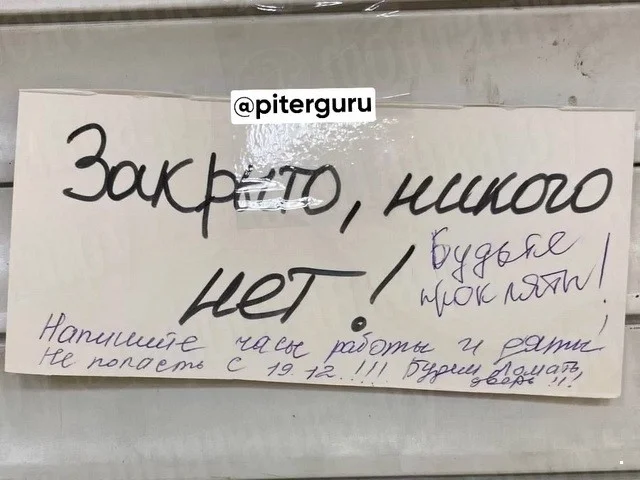 @piterguru
Закрыто, никого
нет!
Будьте
прокляты!
Напишите часы работы и даты
Не попасть с 19.12.!!! Будем ломать
дверь!!!